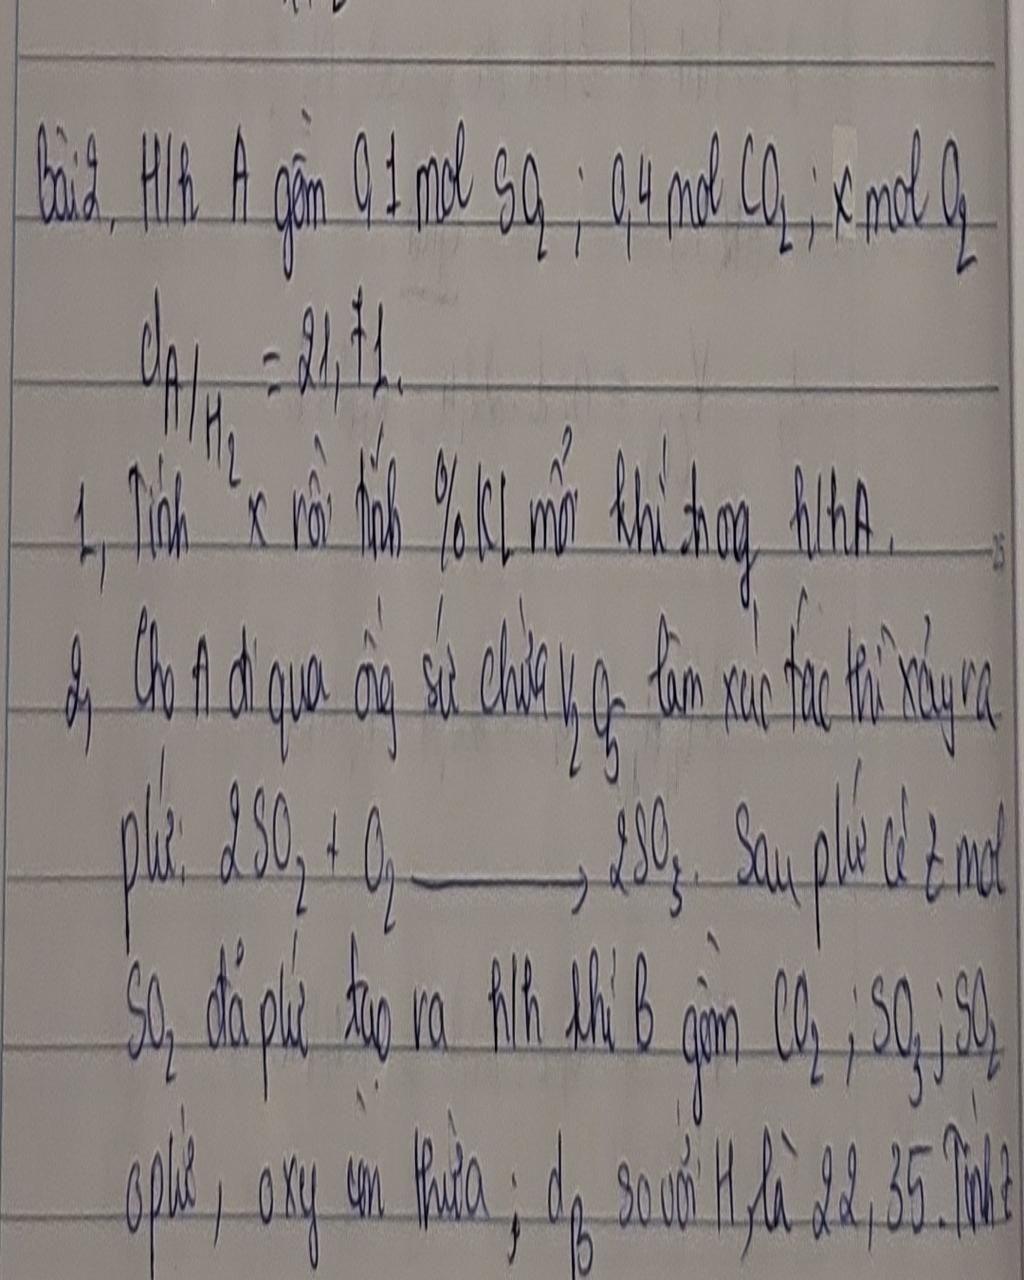 Bài 2, H/h A gồm 0,1 mol SO2 ; 0,4 mol CO2 ; x mol O2
dA/H2 = 21,71.
1, Tính x rồi tính % KL mỗi khí trog h/h A.
2, Cho A đi qua ống sứ chứa V2O5 làm xúc tác thì xảy ra
phứ: 2SO2 + O2 → 2SO3. Sau phứ có t mol
SO2 đã phứ tạo ra h/h khí B gồm CO2 ; SO3 ; SO2
o phứ, oxy còn thừa ; dB so với H2 là 22,35. Tính t